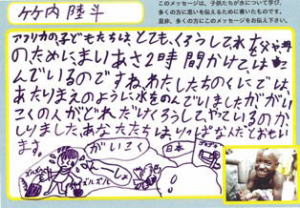 竹内陸斗
このメッセージは、子供たちが水について学び、
多くの方に思いを伝えるために書いたものです。
是非、多くの方にこのメッセージをお伝え下さい。
アフリカの子どもたちは、とても、くろうして 父や母
のためにまいあさ2時間かけてはこ
んでいるのですね。わたしたちのくにでは、
あたりまえのように水をのんでいましたががい
こくの人がどれだけくろうしてやっているのか
しりました。あなたたちは、りっぱな人だとおもい
ます。
がいこく
日本
ズルズル